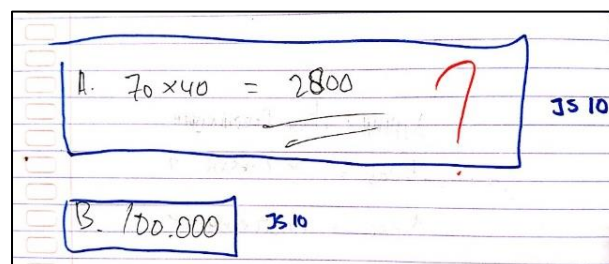 A. 70 x 40 = 2800 ?
JS 10
B. 100.000 JS 10